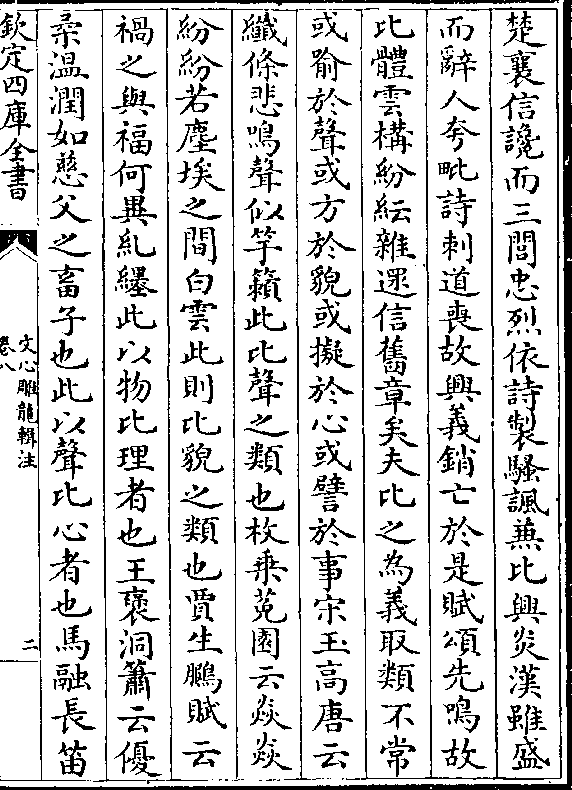 楚襄信讒而三閭忠烈依詩製騷諷兼比興炎漢雖盛
而辭人夸毗詩刺道喪故興義銷亡於是賦頌先鳴故
比體雲構紛紜雜遝信舊章矣夫比之為義取類不常
或喻於聲或方於貌或擬於心或譬於事宋玉高唐云
纖條悲鳴聲似竽籟此比聲之類也枚乗菟園云焱焱
紛紛若塵埃之間白雲此則比貌之類也賈生鵩賦云
禍之與福何異糺纆此以物比理者也王褒洞簫云優
柔温潤如慈父之畜子也此以聲比心者也馬融長笛
欽定四庫全書
文心雕龍輯注
卷八
二